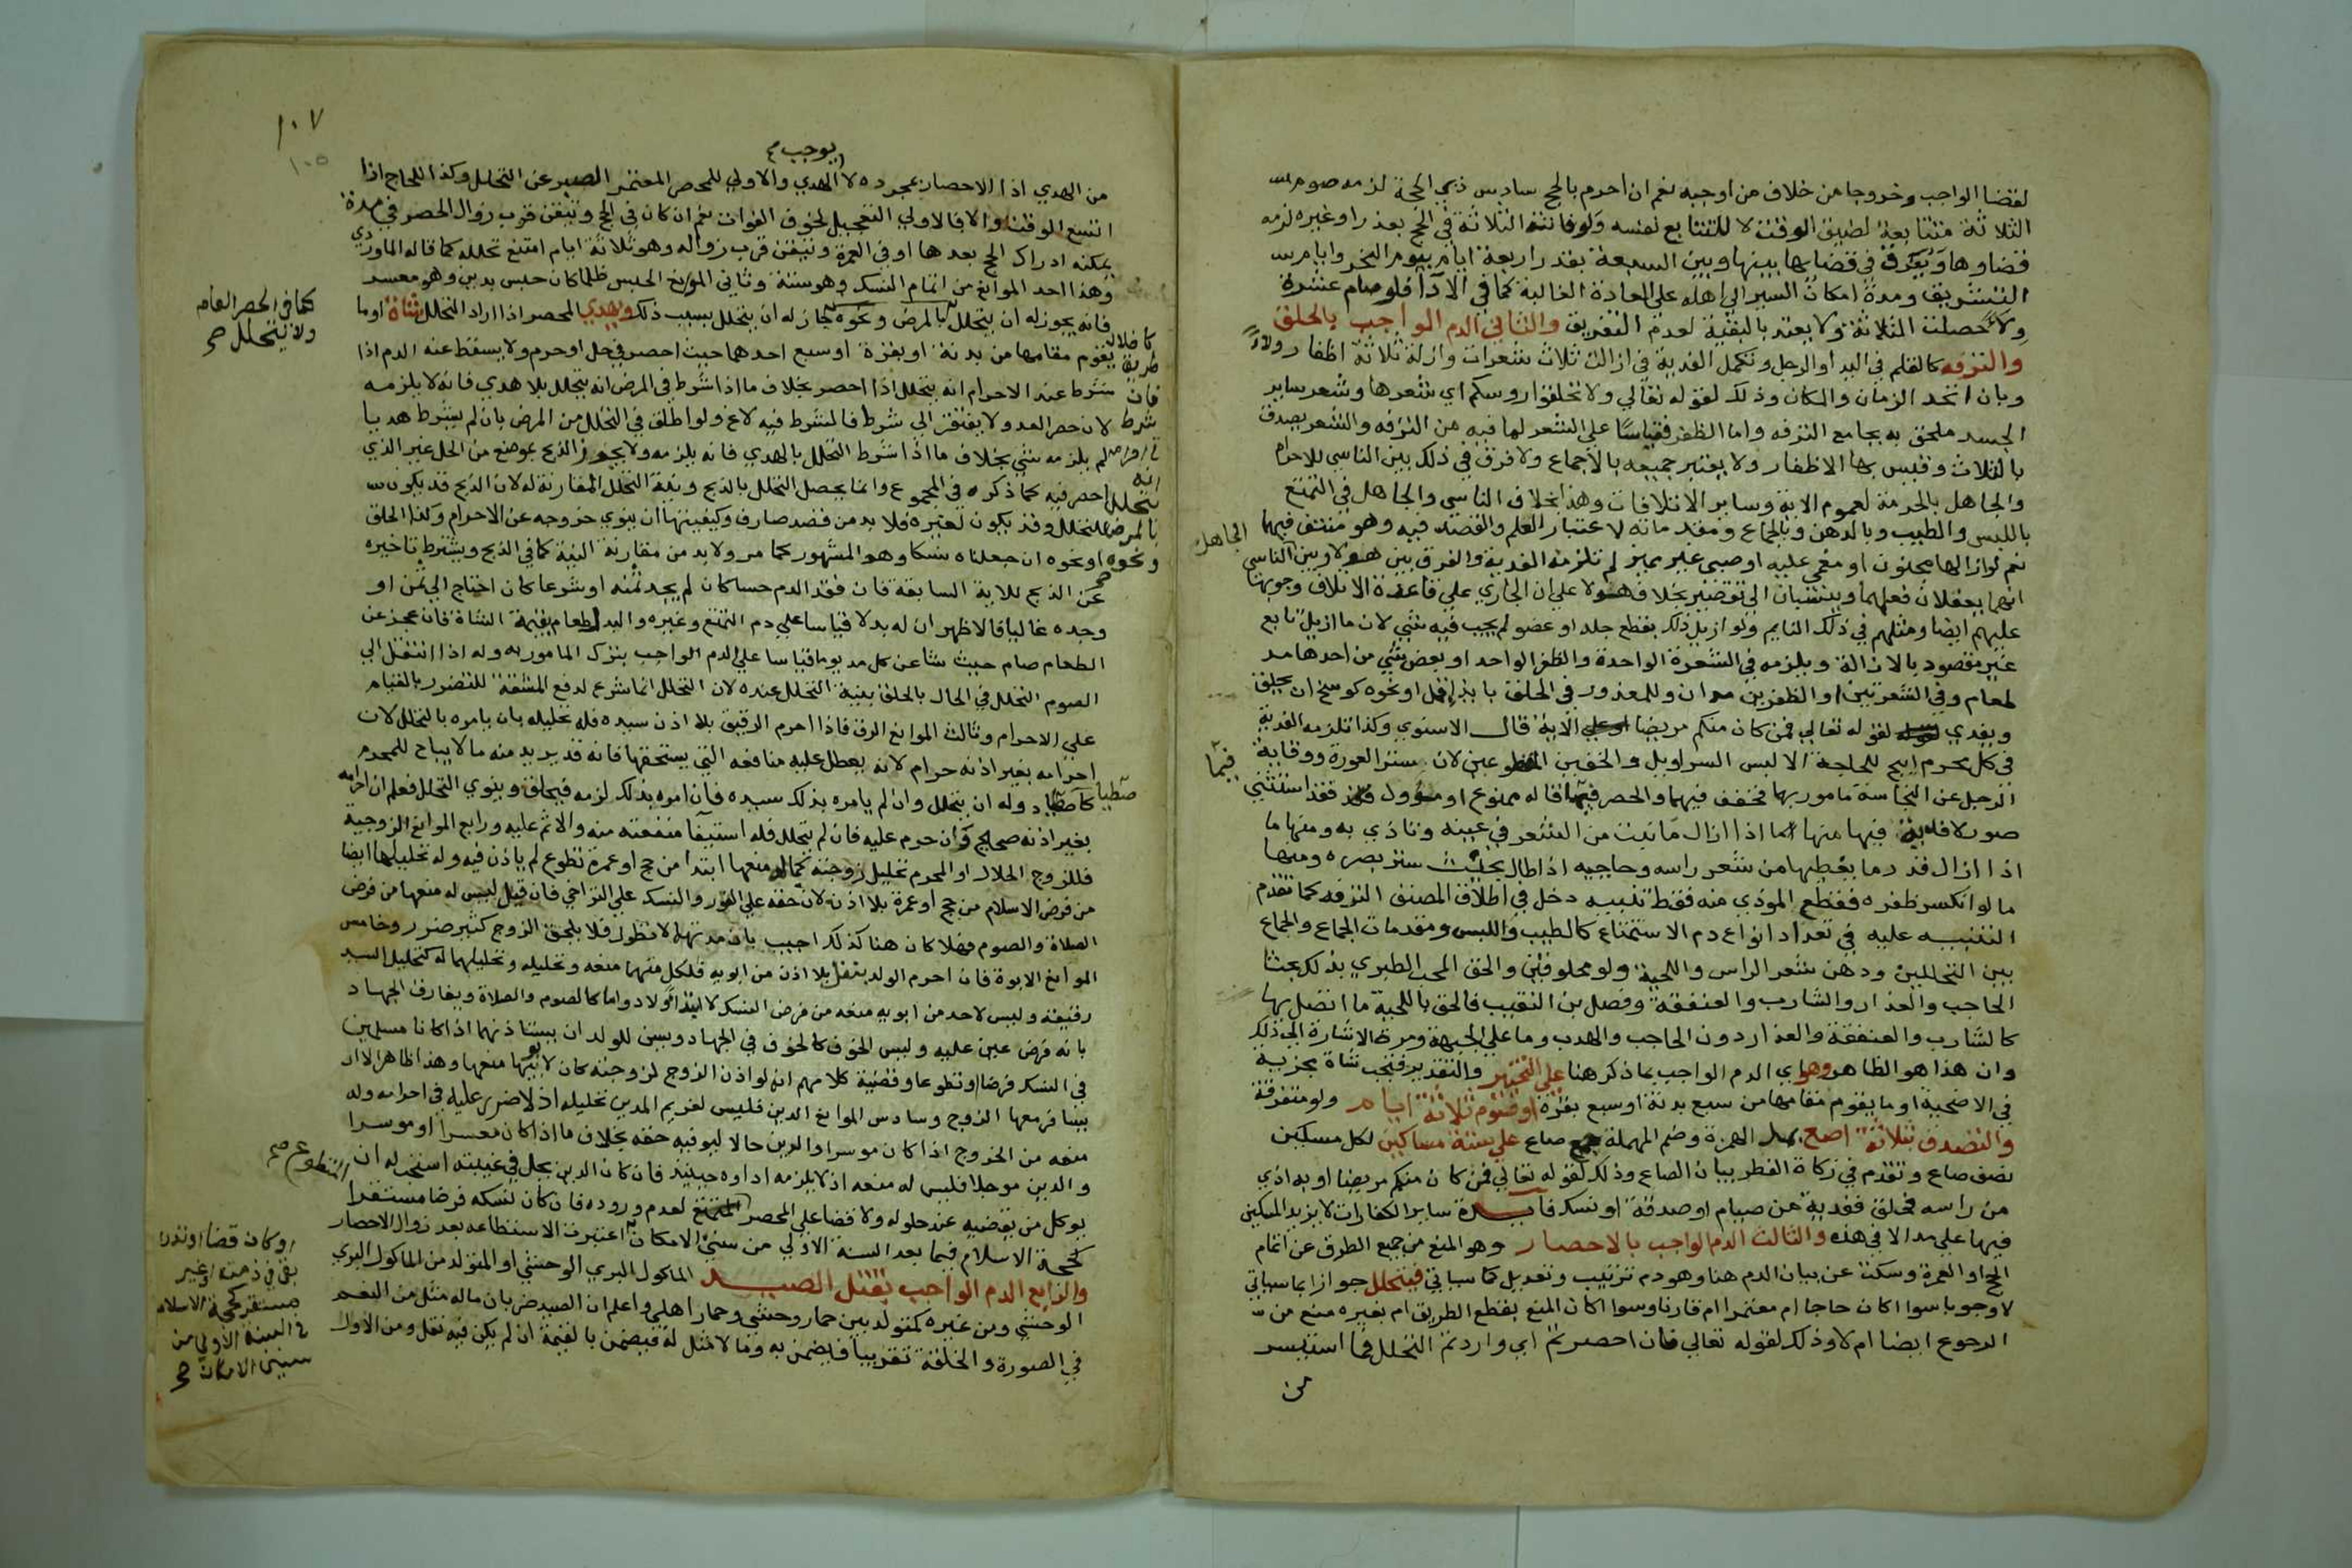 لقضا الواجب وخروجا من خلاف من اوجبه نعم ان احرم بالحج سادس ذي الحجة لزمه صوم
الثلاثة متتابعة لضيق الوقت لا للتتابع نفسه ولو فاتته الثلاثة في الحج بعذر او غيره لزمه
قضاوها ويفرق في قضايها بينها وبين السبعة بقدر اربعة ايام يوم النحر وايام
التشريق ومدة امكان السير الي اهله علي العادة الغالبة كما في الادا فلو صام عشرة
ولاء حصلت الثلاثة ولا يعتد بالبقية لعدم التفريق والثاني الدم الواجب بالحلق
والترفه كالقلم في اليد او الرجل وتكمل الفدية في ازالة ثلاث شعرات وازلة ثلاثة اظفار ولاء
وبان اتحد الزمان والمكان وذلك لقوله تعالي ولا تحلقوا روسكم اي شعرها وشعر ساير
الجسد ملحق به بجامع الترفه واما الظفر فقياسا علي الشعر لما فيه من الترفه والشعر يصدق
بالثلاث وقيس بها الاظفار ولا يعتبر جميعه بالاجماع ولا فرق في ذلك بين الناسي للاحرام
والجاهل بالحرمة لعموم الاية وساير الاتلافات وهذا بخلاف الناسي والجاهل في التمتع
باللبس والطيب وبالدهن وبالجماع ومقدماته لاعتبار العلم والقصد فيه وهو منتف فيهما
نعم لو ازالها مجنون او مغمي عليه او صبي غير مميز لم تلزمه الفدية والفرق بين هولا وبين الناسي
الجاهل
انهما يعقلان فعلهما وينسبان الي تقصير بخلاف هولا علي ان الجاري علي قاعدة الاتلاف وجوبها
عليهم ايضا ومثلهم في ذلك النايم ولو ازيل ذلك بقطع جلد او عضو لم يجب فيه شي لان ما ازيل تابع
غير مقصود بالازالة ويلزمه في الشعرة الواحدة والظفر الواحد او بعض شي من احدهما مد
طعام وفي الشعرتين او الظفرين مدان وللمعذور في الحلق بايذا قمل او نحوه كوسخ ان يحلق
ويفدي لقوله تعالي فمن كان منكم مريضا الاية قال الاسنوي وكذا تلزمه الفدية
في كل محرم ابيح للحاجة الا لبس السراويل والخفين المقطوعين لان ستر العورة ووقاية
الرجل عن النجاسة مامور بها فخفف فيهما والحصر فيما قاله ممنوع او مؤول فقد استثني
فيما
صور لا فدية فيها منها ما اذا ازال ما نبت من الشعر في عينه وتاذي به ومنها ما
اذا ازال قدر ما يغطيها من شعر راسه وحاجبه اذا طال بحيث ستر بصره ومنها
ما لو انكسر ظفره فقطع الموذي منه فقط تنبيه دخل في اطلاق المصنف الترفه كما تقدم
التنبيه عليه في تعداد انواع دم الاستمتاع كالطيب واللبس ومقدمات الجماع والجماع
بين التحللين ودهن شعر الراس واللحية ولو محلوقين والحق المحب الطبري بذلك بحثا
الحاجب والعذار والشارب والعنفقة وفصل بن النقيب فالحق باللحية ما اتصل بها
كالشارب والعنفقة والعذار دون الحاجب والهدب وما علي الجبهة ومرت الاشارة الي ذلك
وان هذا هو الظاهر وهو اي الدم الواجب بما ذكر هنا علي التخيير والتقدير فتجب شاة مجزية
في الاضحية او ما يقوم مقامها من سبع بدنة او سبع بقرة او صوم ثلاثة ايام ولو متفرقة
والتصدق بثلاثة اصع بمد الهمزة وضم المهملة جمع صاع علي ستة مساكين لكل مسكين
نصف صاع وتقدم في زكاة الفطر بيان الصاع وذلك لقوله تعالي فمن كان منكم مريضا او به اذي
من راسه فحلق ففدية من صيام او صدقة او نسك فايدة ساير الكفارات لا يزيد المسكين
فيها علي مد الا في هذه والثالث الدم الواجب بالاحصار وهو المنع من جميع الطرق عن اتمام
الحج او العمرة وسكت عن بيان الدم هنا وهو دم ترتيب وتعديل كما سياتي فيتحلل جوازا بما سياتي
لا وجوبا سوا اكان حاجا ام معتمرا ام قارنا وسوا اكان المنع بقطع الطريق ام بغيره منع من
الرجوع ايضا ام لا وذلك لقوله تعالي فان احصرتم اي واردتم التحلل فما استيسر
من
١٠٧
١٠٥
يوجب
من الهدي اذا الاحصار بمجرده لا الهدي والاولي للمحصر المعتمر الصبر عن التحلل وكذا للحاج اذا
اتسع الوقت والا فالاولي التعجيل لخوف الفوات نعم ان كان في الحج وتيقن قرب زوال الحصر في مدة
يمكنه ادراك الحج بعدها او في العمرة وتيقن قرب زواله وهو ثلاثة ايام امتنع تحلله كما قاله الماوردي
وهذا احد الموانع من اتمام النسك وهو ستة وثاني الموانع الحبس ظلما كان حبس بدين وهو معسر
فانه يجوز له ان يتحلل بالمرض ونحوه جاز له ان يتحلل بسبب ذلك ويهدي المحصر اذا اراد التحلل شاة او ما
كما في الحصر العام
ولا يتحلل
كاضلال
طريق
فان
شرط
في احرامه
انه
يتحلل
بالمرض
ونحوه
يقوم مقامها من بدنة او بقرة او سبع احدهما حيث احصر في حل او حرم ولا يسقط عنه الدم اذا
شرط عند الاحرام انه يتحلل اذا احصر بخلاف ما اذا شرط في المرض انه يتحلل بلا هدي فانه لا يلزمه
لان حصر العدو لا يفتقر الي شرط فالشرط فيه لاغ ولو اطلق في التحلل من المرض بان لم يشرط هديا
لم يلزمه شي بخلاف ما اذا شرط التحلل بالهدي فانه يلزمه ولا يجوز الذبح بموضع من الحل غير الذي
احصر فيه كما ذكره في المجموع وانما يحصل التحلل بالذبح ونية التحلل المقارنة له لان الذبح قد يكون
للتحلل وقد يكون لغيره فلا بد من قصد صارف وكيفيتها ان ينوي خروجه عن الاحرام وكذا الحلق
او نحوه ان جعلناه نسكا وهو المشهور كما مر ولا بد من مقارنة النية كما في الذبح ويشترط تاخيره
عن الذبح للاية السابقة فان فقد الدم حسا كان لم يجد ثمنه او شرعا كان احتاج الي ثمن او
وجده غاليا فالاظهر ان له بدلا قياسا علي دم التمتع وغيره والبدل اطعام بقيمة الشاة فان عجز عن
الطعام صام حيث شا عن كل مد يوما قياسا علي الدم الواجب بترك المامور به وله اذا انتقل الي
الصوم التحلل في الحال بالحلق بنية التحلل عنده لان التحلل انما شرع لدفع المشقة للتضرر بالمقام
علي الاحرام وثالث الموانع الرق فاذا احرم الرقيق بلا اذن سيده فله تحليله بان يامره بالتحلل لان
احرامه بغير اذنه حرام لانه يعطل عليه منافعه التي يستحقها فانه قد يريد منه ما لا يباح للمحرم
كاصطياد وله ان يتحلل وان لم يامره بذلك سيده فان امره بذلك لزمه فيحلق وينوي التحلل فعلم ان احرامه
بغير اذنه صحيح وان حرم عليه فان لم يتحلل فله استيفا منفعته منه والاثم عليه ورابع الموانع الزوجية
فللزوج الحلال او المحرم تحليل زوجته كما له منعها ابتدا من حج او عمرة تطوع لم ياذن فيه وله تحليلها ايضا
من فرض الاسلام من حج او عمرة بلا اذن لان حقه علي الفور والنسك علي التراخي فان قيل ليس له منعها من فرض
الصلاة والصوم فهلا كان هنا كذلك اجيب بان مدتهما لا تطول فلا يلحق الزوج كثير ضرر وخامس
الموانع الابوة فان احرم الولد بنفل بلا اذن من ابويه فلكل منهما منعه وتحليله وتحليلهما له كتحليل السيد
رقيقه وليس لاحد من ابويه منعه من فرض النسك لا ابتداء ولا دواما كالصوم والصلاة ويفارق الجهاد
بانه فرض عين عليه وليس الخوف كالخوف في الجهاد ويسن للولد ان يستاذنهما اذا كانا مسلمين
في النسك فرضا او تطوعا وقضية كلامهم انه لو اذن الزوج لزوجته كان لابويها منعها وهذا ظاهر الا ان
يسافر معها الزوج وسادس الموانع الدين فليس لغريم المدين تحليله اذ لا ضرر عليه في احرامه وله
منعه من الخروج اذا كان موسرا والدين حالا ليوفيه حقه بخلاف ما اذا كان معسرا او موسرا
والدين موجلا فليس له منعه اذ لا يلزمه اداوه حينيذ فان كان الدين يحل في غيبته استحب له ان
يوكل من يقضيه عند حلوله ولا قضا علي المحصر المتطوع لعدم وروده فان كان نسكه فرضا مستقرا
كحجة الاسلام فيما بعد السنة الاولي من سني الامكان اعتبرت الاستطاعة بعد زوال الاحصار
او كان قضا او نذرا
بقي في ذمته او غير
مستقر كحجة الاسلام
في السنة الاولي من
سني الامكان
والرابع الدم الواجب بقتل الصيد الماكول البري الوحشي او المتولد من الماكول البري
الوحشي ومن غيره كمتولد بين حمار وحشي وحمار اهلي واعلم ان الصيد ضربان ماله مثل من النعم
في الصورة والخلقة تقريبا فيضمن به وما لا مثل له فيضمن بالقيمة ان لم يكن فيه نقل ومن الاول